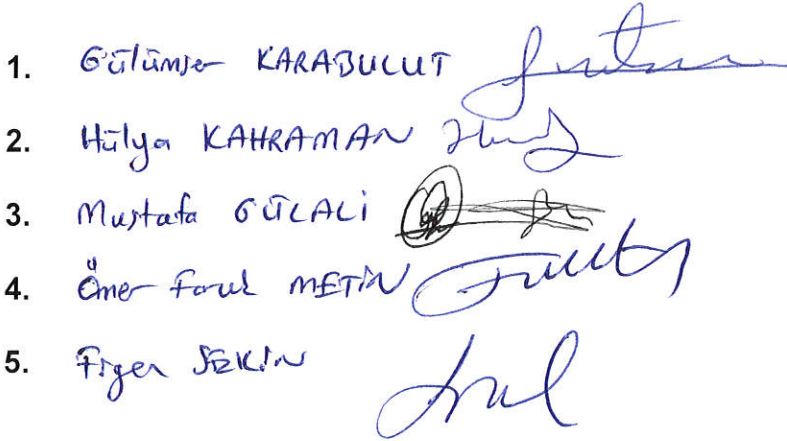 1. Gülümser KARABULUT
2. Hülya KAHRAMAN
3. Mustafa GÜLALİ
4. Ömer Faruk METİN
5. Figen SEKİN